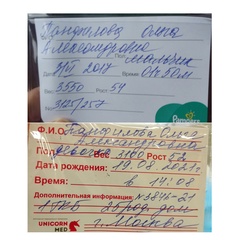 Панфилова Ольга
Александровна
Пол мальчик
Дата 2017 Время 01ч 50м
Вес 3550 Рост 54
3125/257
Pampers
Ф.И.О. Панфилова Ольга
Александровна
Пол девочка Вес 3100 Рост 52
Дата рождения: 19.08.2021г
Время: в 14:08
Дополнительная информация: №3846-21
25 род. дом
UNICORN г. Москва
MED